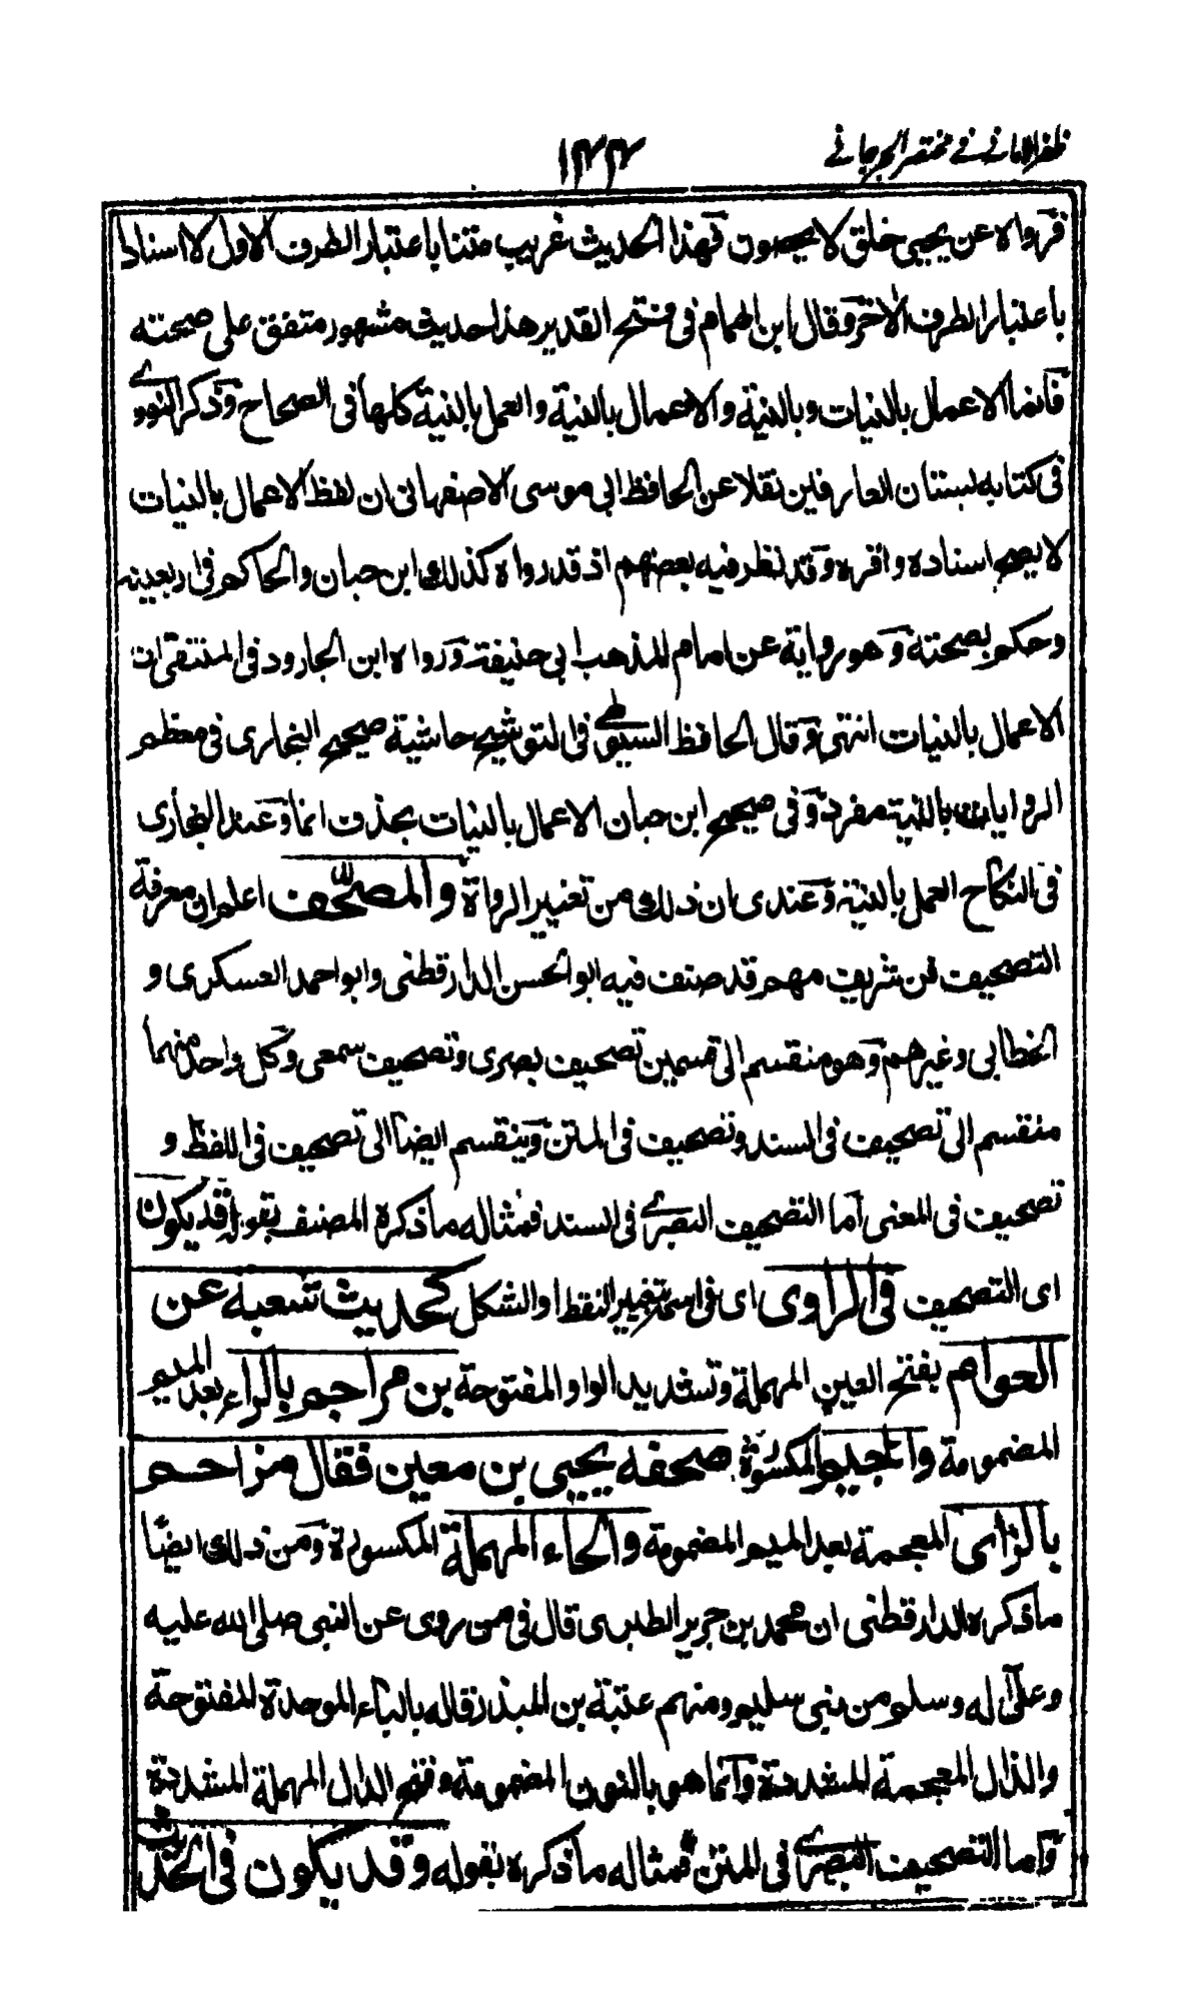 ظفر الامانی فی مختصر الجرجانی
١٣٢
فرواه عن يحيى خلق لا يحصون فهذا الحديث غريب متنا باعتبار الطرف الاول لا اسنادا
باعتبار الطرف الاخر وقال ابن الهمام فى فتح القدير هذا حديث مشهور متفق على صحته
فانما الاعمال بالنيات وبالنية والاعمال بالنية والعمل بالنية كلها فى الصحاح وذكر النووى
فى كتابه بستان العارفين نقلا عن الحافظ ابى موسى الاصفهانى ان لفظ الاعمال بالنيات
لا يصح اسناده واقره وقد نظر فيه بعضهم اذ قد رواه كذلك ابن حبان والحاكم فى اربعينه
وحكم بصحته وهو رواية عن امام المذهب ابى حنيفة ورواه ابن الجارود فى المنتقى ان
الاعمال بالنيات انتهى وقال الحافظ السيوطى فى التوشيح حاشية صحيح البخارى فى معظم
الروايات بالنية مفردة وفى صحيح ابن حبان الاعمال بالنيات بحذف انما وعند البخارى
فى النكاح العمل بالنية وعندى ان ذلك من تغيير الرواة والمصحّف اعلم ان معرفة
التصحيف فن شريف مهم قد صنف فيه ابو الحسن الدارقطنى وابو احمد العسكرى و
الخطابى وغيرهم وهو منقسم الى قسمين تصحيف بصرى وتصحيف سمعى وكل واحد منهما
منقسم الى تصحيف فى السند وتصحيف فى المتن وينقسم ايضا الى تصحيف فى اللفظ و
تصحيف فى المعنى اما التصحيف البصرى فى السند فمثاله ما ذكره المصنف بقوله قد يكون
اى التصحيف فى الراوى اى فى اسمه بتغيير النقط او الشكل كحديث شعبة عن
العوام بفتح العين المهملة وتشديد الواو المفتوحة بن مراجم بالراء بعد الميم
المضمومة والجيم المكسورة صحفه يحيى بن معين فقال مزاحم
بالزاى المعجمة بعد الميم المضمومة والحاء المهملة المكسورة ومن ذلك ايضا
ما ذكره الدارقطنى ان محمد بن جرير الطبرى قال فى من روى عن النبى صلى الله عليه
وعلى آله وسلم من بنى سليم ومنهم عتبة بن البذر قاله بالباء الموحدة المفتوحة
والذال المعجمة المشددة وانما هو بالنون المضمومة وفتح الدال المهملة المشددة
واما التصحيف البصرى فى المتن فمثاله ما ذكره بقوله وقد يكون فى الحديث